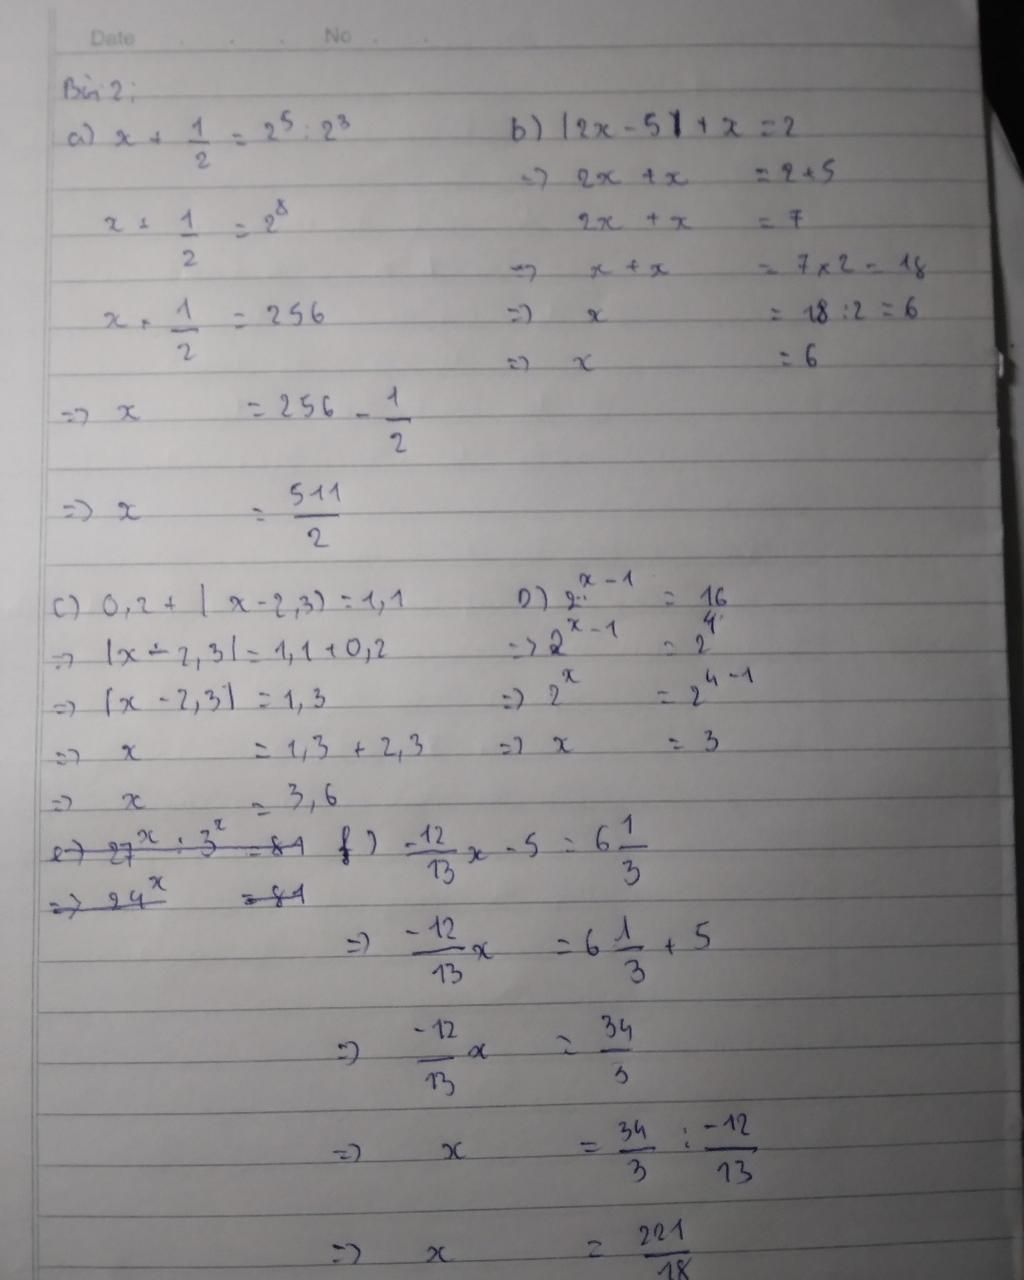 Date . . . No . .
Bài 2:
a) x + 1/2 = 2^5 : 2^3
x + 1/2 = 2^8
x + 1/2 = 256
=> x = 256 - 1/2
=> x = 511/2
b) |2x - 5| + x = 2
=> 2x + x = 2 + 5
2x + x = 7
=> x + x = 7 x 2 = 18
=> x = 18 : 2 = 6
=> x = 6
c) 0,2 + | x - 2,3) = 1,1
=> |x - 2,3| = 1,1 + 0,2
=> |x - 2,3| = 1,3
=> x = 1,3 + 2,3
=> x = 3,6
D) 2^x-1 = 16
=> 2^x-1 = 2^4
=> 2^x = 2^4-1
=> x = 3
e) 27^x : 3^x = 81
=> 24^x = 81
f) -12/13 x - 5 = 6 1/3
=> -12/13 x = 6 1/3 + 5
=> -12/13 x = 34/3
=> x = 34/3 : -12/13
=> x = 221/18